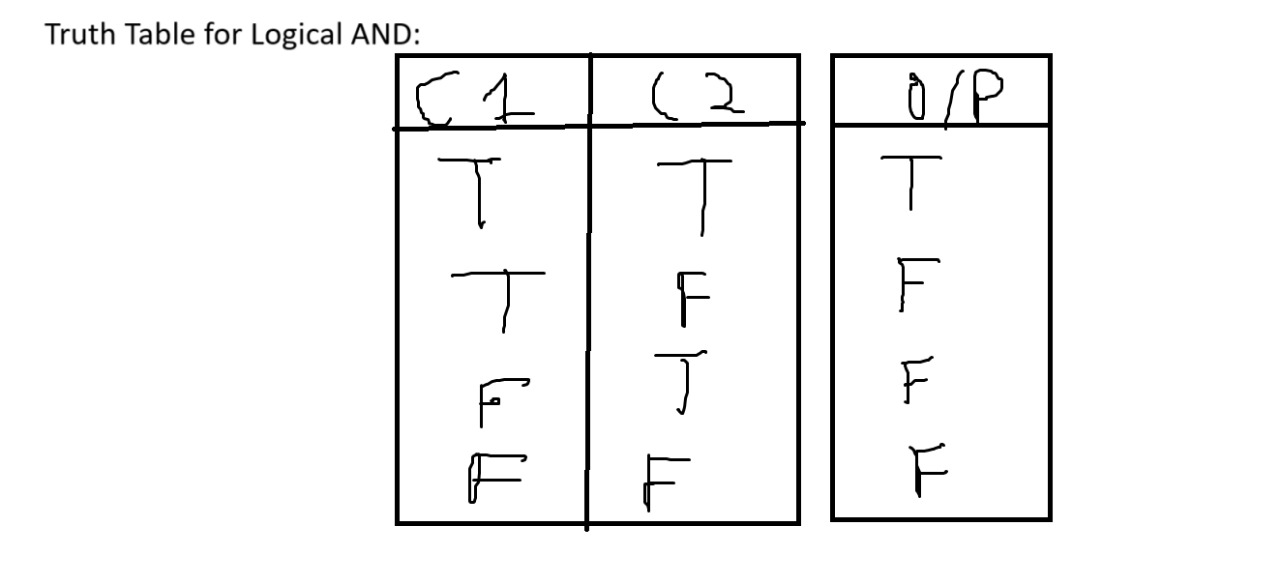 Truth Table for Logical AND:
C1 C2 O/P
T T T
T F F
F T F
F F F